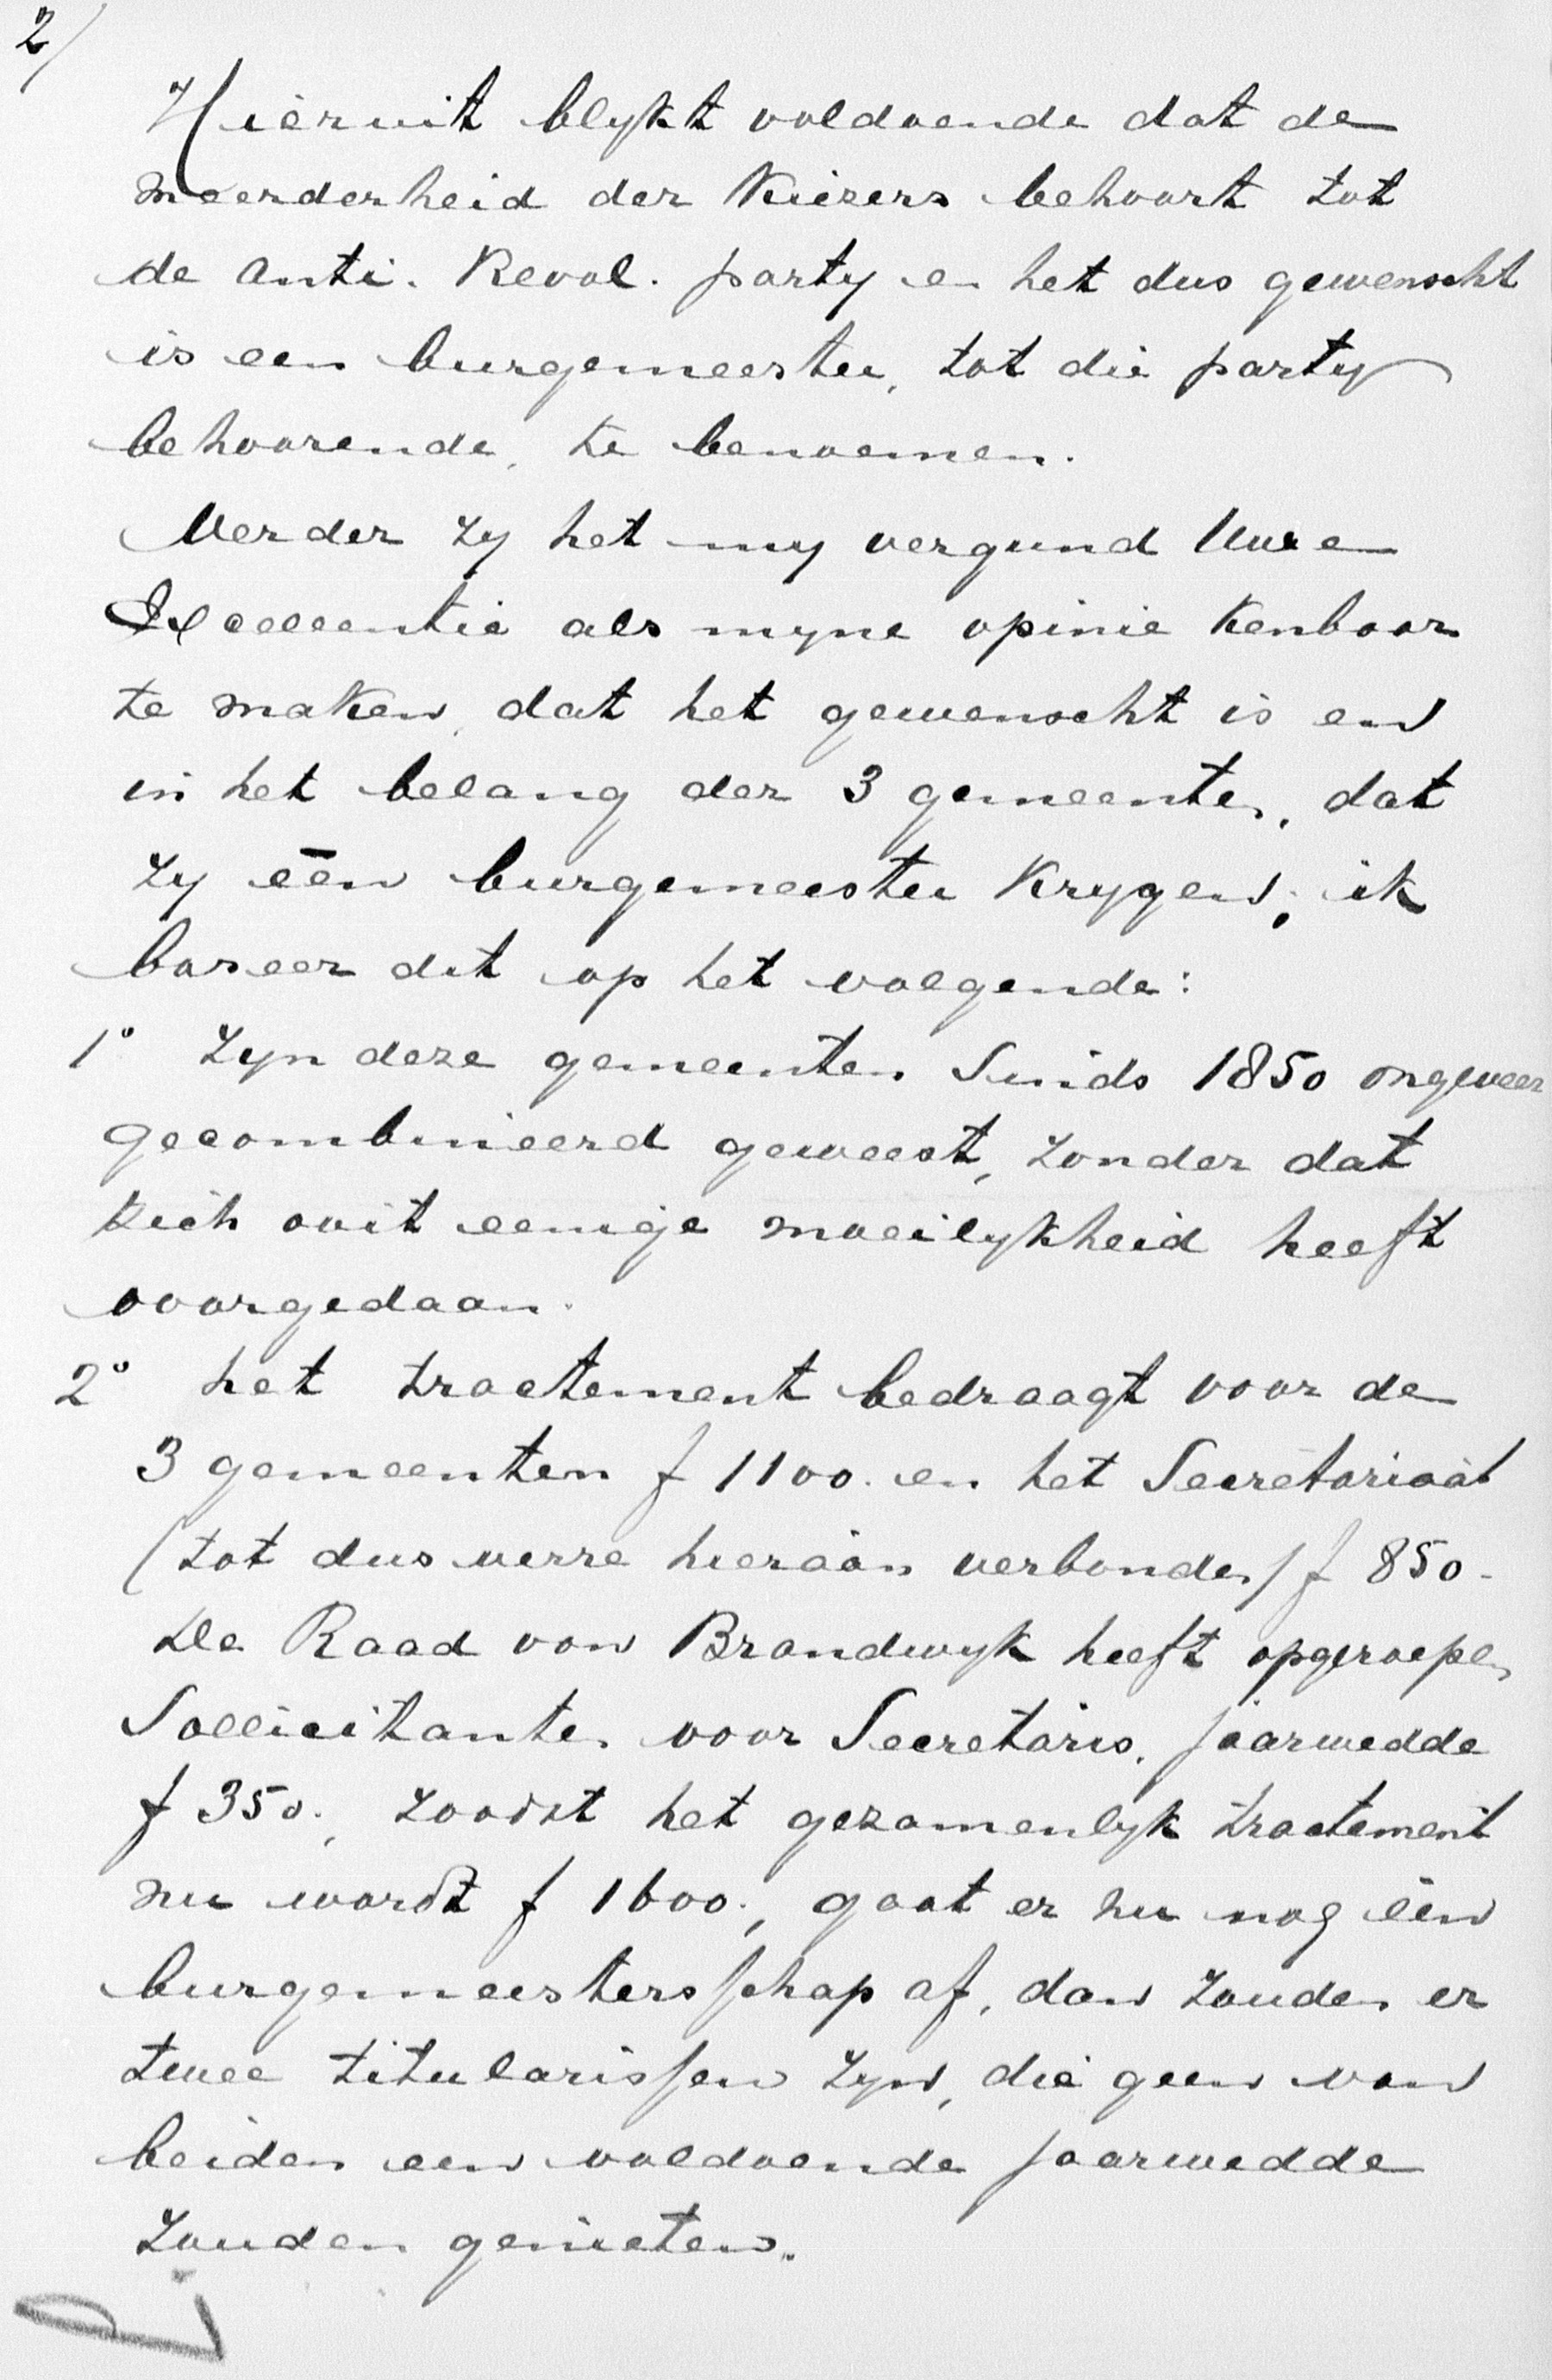 2/
Hieruit blykt voldoende dat de
meerderheid der Kiezers behoort tot
de Anti. Revol. party en het dus gewenscht
is een burgemeester, tot die party
behoorende, te benoemen.
Verder zy het my vergund Uwe
Excellentie als myne opinie Kenbaar
te maken, dat het gewenscht is en
in het belang der 3 gemeenten, dat
zy één burgemeester Krygen; ik
baseer dit op het volgende:
1° Zyn deze gemeenten Sinds 1850 ongeveer
gecombineerd geweest, zonder dat
zich ooit eenige moeilykheid heeft
voorgedaan.
2° het tractement bedraagt voor de
3 gemeenten f 1100. en het Secretariaat
(tot dusverre hieraan verbonden) f 850-
De Raad van Brandwyk heeft opgeroepen
Sollicitanten voor Secretaris, jaarwedde
f 350., zoodat het gezamenlyk tractement
nu wordt f 1600., gaat er nu nog één
burgemeestersschap af, dan zouden er
twee titularissen zyn, die geen van
beiden een voldoende jaarwedde
zouden genieten.